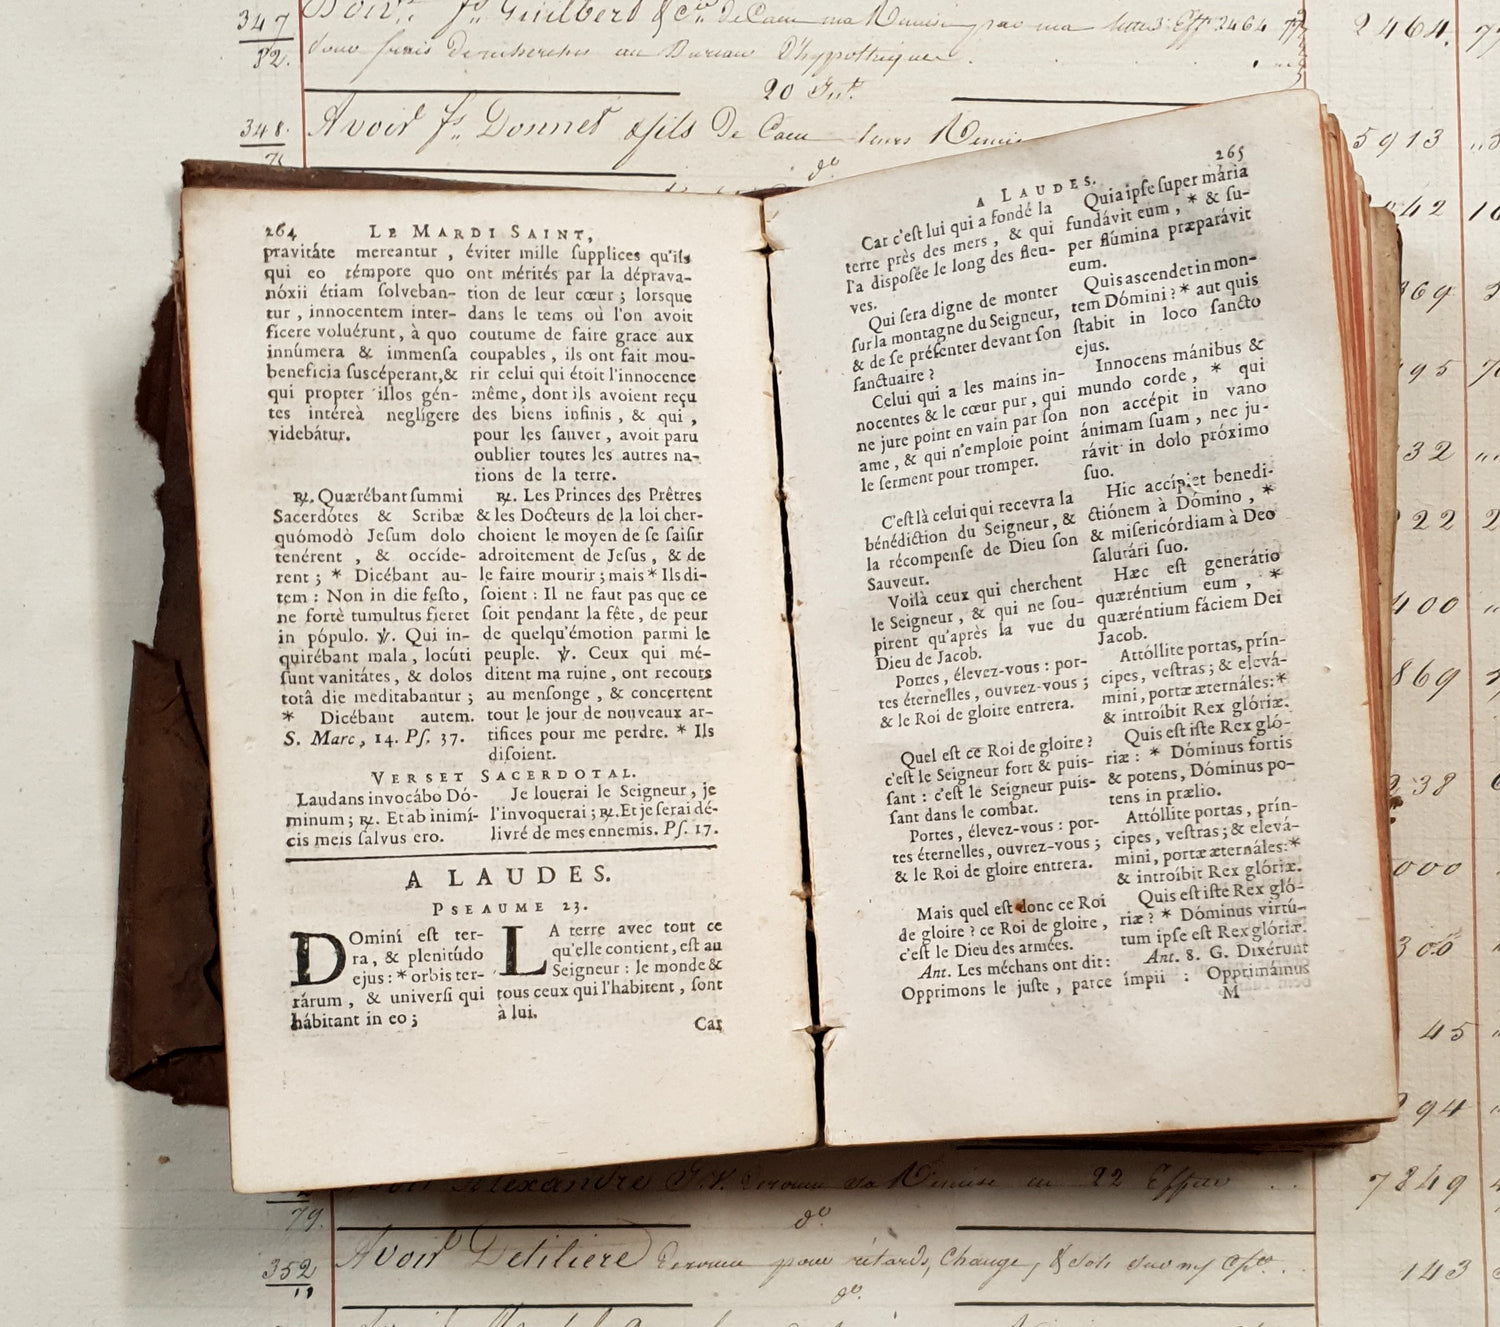 347
Avoir fs. Guilbert & Cie. de Caen ma Remise par ma 2464 77
2464. 77
52.
pour frais de recherches au Bureau d'hypothèques
20 Jut.
348.
Avoir fs. Donnet & fils De Caen leurs Remise
5913
do.
264
LE MARDI SAINT,
pravitáte mereantur,
qui eo témpore quo
nóxii étiam solveban-
tur, innocentem inter-
ficere voluérunt, à quo
innúmera & immensa
beneficia suscéperant, &
qui propter illos gén-
tes intéreà neglígere
videbátur.
éviter mille supplices qu'ils
ont mérités par la déprava-
tion de leur cœur ; lorsque
dans le tems où l'on avoit
coutume de faire grace aux
coupables, ils ont fait mou-
rir celui qui étoit l'innocence
même, dont ils avoient reçu
des biens infinis, & qui,
pour les sauver, avoit paru
oublier toutes les autres na-
tions de la terre.
℟. Quærébant summi
Sacerdótes & Scribæ
quómodò Jesum dolo
tenérent, & occíde-
rent ; * Dicébant au-
tem : Non in die festo,
ne fortè tumultus fieret
in pópulo. ℣. Qui in-
quirébant mala, locúti
sunt vanitátes, & dolos
totâ die meditabantur ;
* Dicébant autem.
S. Marc, 14. Ps. 37.
℟. Les Princes des Prêtres
& les Docteurs de la loi cher-
choient le moyen de se saisir
adroitement de Jesus, & de
le faire mourir ; mais * Ils di-
soient : Il ne faut pas que ce
soit pendant la fête, de peur
de quelqu'émotion parmi le
peuple. ℣. Ceux qui mé-
ditent ma ruine, ont recours
au mensonge, & concertent
tout le jour de nouveaux ar-
tifices pour me perdre. * Ils
disoient.
VERSET SACERDOTAL.
Laudans invocábo Dó-
minum ; ℟. Et ab inimí-
cis meis salvus ero.
Je louerai le Seigneur, je
l'invoquerai ; ℟. Et je serai dé-
livré de mes ennemis. Ps. 17.
A LAUDES.
PSEAUME 23.
DOmini est ter-
ra, & plenitúdo
ejus : * orbis ter-
rárum, & universi qui
hábitant in eo ;
LA terre avec tout ce
qu'elle contient, est au
Seigneur : le monde &
tous ceux qui l'habitent, sont
à lui.
Car
265
A LAUDES.
Car c'est lui qui a fondé la
terre près des mers, & qui
l'a disposée le long des fleu-
ves.
Qui sera digne de monter
sur la montagne du Seigneur,
& de se présenter devant son
sanctuaire ?
Celui qui a les mains in-
nocentes & le cœur pur, qui
ne jure point en vain par son
ame, & qui n'emploie point
le serment pour tromper.
C'est là celui qui recevra la
bénédiction du Seigneur, &
la récompense de Dieu son
Sauveur.
Voilà ceux qui cherchent
le Seigneur, & qui ne sou-
pirent qu'après la vue du
Dieu de Jacob.
Portes, élevez-vous : por-
tes éternelles, ouvrez-vous ;
& le Roi de gloire entrera.
Quel est ce Roi de gloire ?
c'est le Seigneur fort & puis-
sant : c'est le Seigneur puis-
sant dans le combat.
Portes, élevez-vous : por-
tes éternelles, ouvrez-vous ;
& le Roi de gloire entrera.
Mais quel est donc ce Roi
de gloire ? ce Roi de gloire,
c'est le Dieu des armées.
Ant. Les méchans ont dit :
Opprimons le juste, parce
Quia ipse super mária
fundávit eum, * & su-
per flúmina præparávit
eum.
Quis ascendet in mon-
tem Dómini ? * aut quis
stabit in loco sancto
ejus.
Innocens mánibus &
mundo corde, * qui
non accépit in vano
ánimam suam, nec ju-
rávit in dolo próximo
suo.
Hic accípiet benedi-
ctiónem à Dómino, *
& misericórdiam à Deo
salutári suo.
Hæc est generátio
quæréntium eum, *
quæréntium fáciem Dei
Jacob.
Attóllite portas, prín-
cipes, vestras ; & elevá-
mini, portæ æternáles : *
& introíbit Rex glóriæ.
Quis est iste Rex gló-
riæ : * Dóminus fortis
& potens, Dóminus po-
tens in prælio.
Attóllite portas, prín-
cipes, vestras ; & elevá-
mini, portæ æternáles : *
& introíbit Rex glóriæ.
Quis est iste Rex gló-
riæ ? * Dóminus virtú-
tum ipse est Rex glóriæ.
Ant. 8. G. Dixérunt
ímpii : Opprimámus
M
42
69
95
32
22
400
869
38
000
300
45
294
Alexandre
Remise en 22
7849
79.
do.
352
11
Avoir Detiliere
pour rétards, Change, &
143
do.